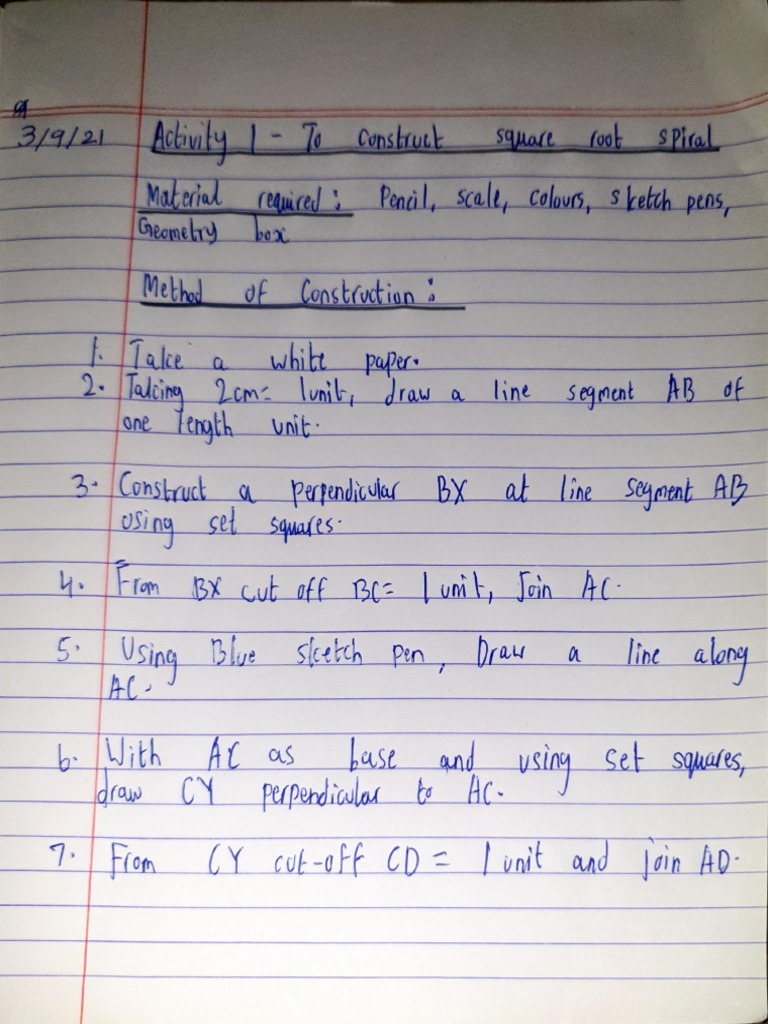 3/9/21 Activity 1 - To construct square root spiral
Material required: Pencil, scale, colours, sketch pens,
Geometry box
Method of Construction:
1. Take a white paper.
2. Taking 2cm = 1unit, draw a line segment AB of
one length unit.
3. Construct a perpendicular BX at line segment AB
using set squares.
4. From BX cut off BC = 1 unit, Join AC.
5. Using Blue sketch pen, Draw a line along
AC.
6. With AC as base and using set squares,
draw CY perpendicular to AC.
7. From CY cut-off CD = 1 unit and join AD.